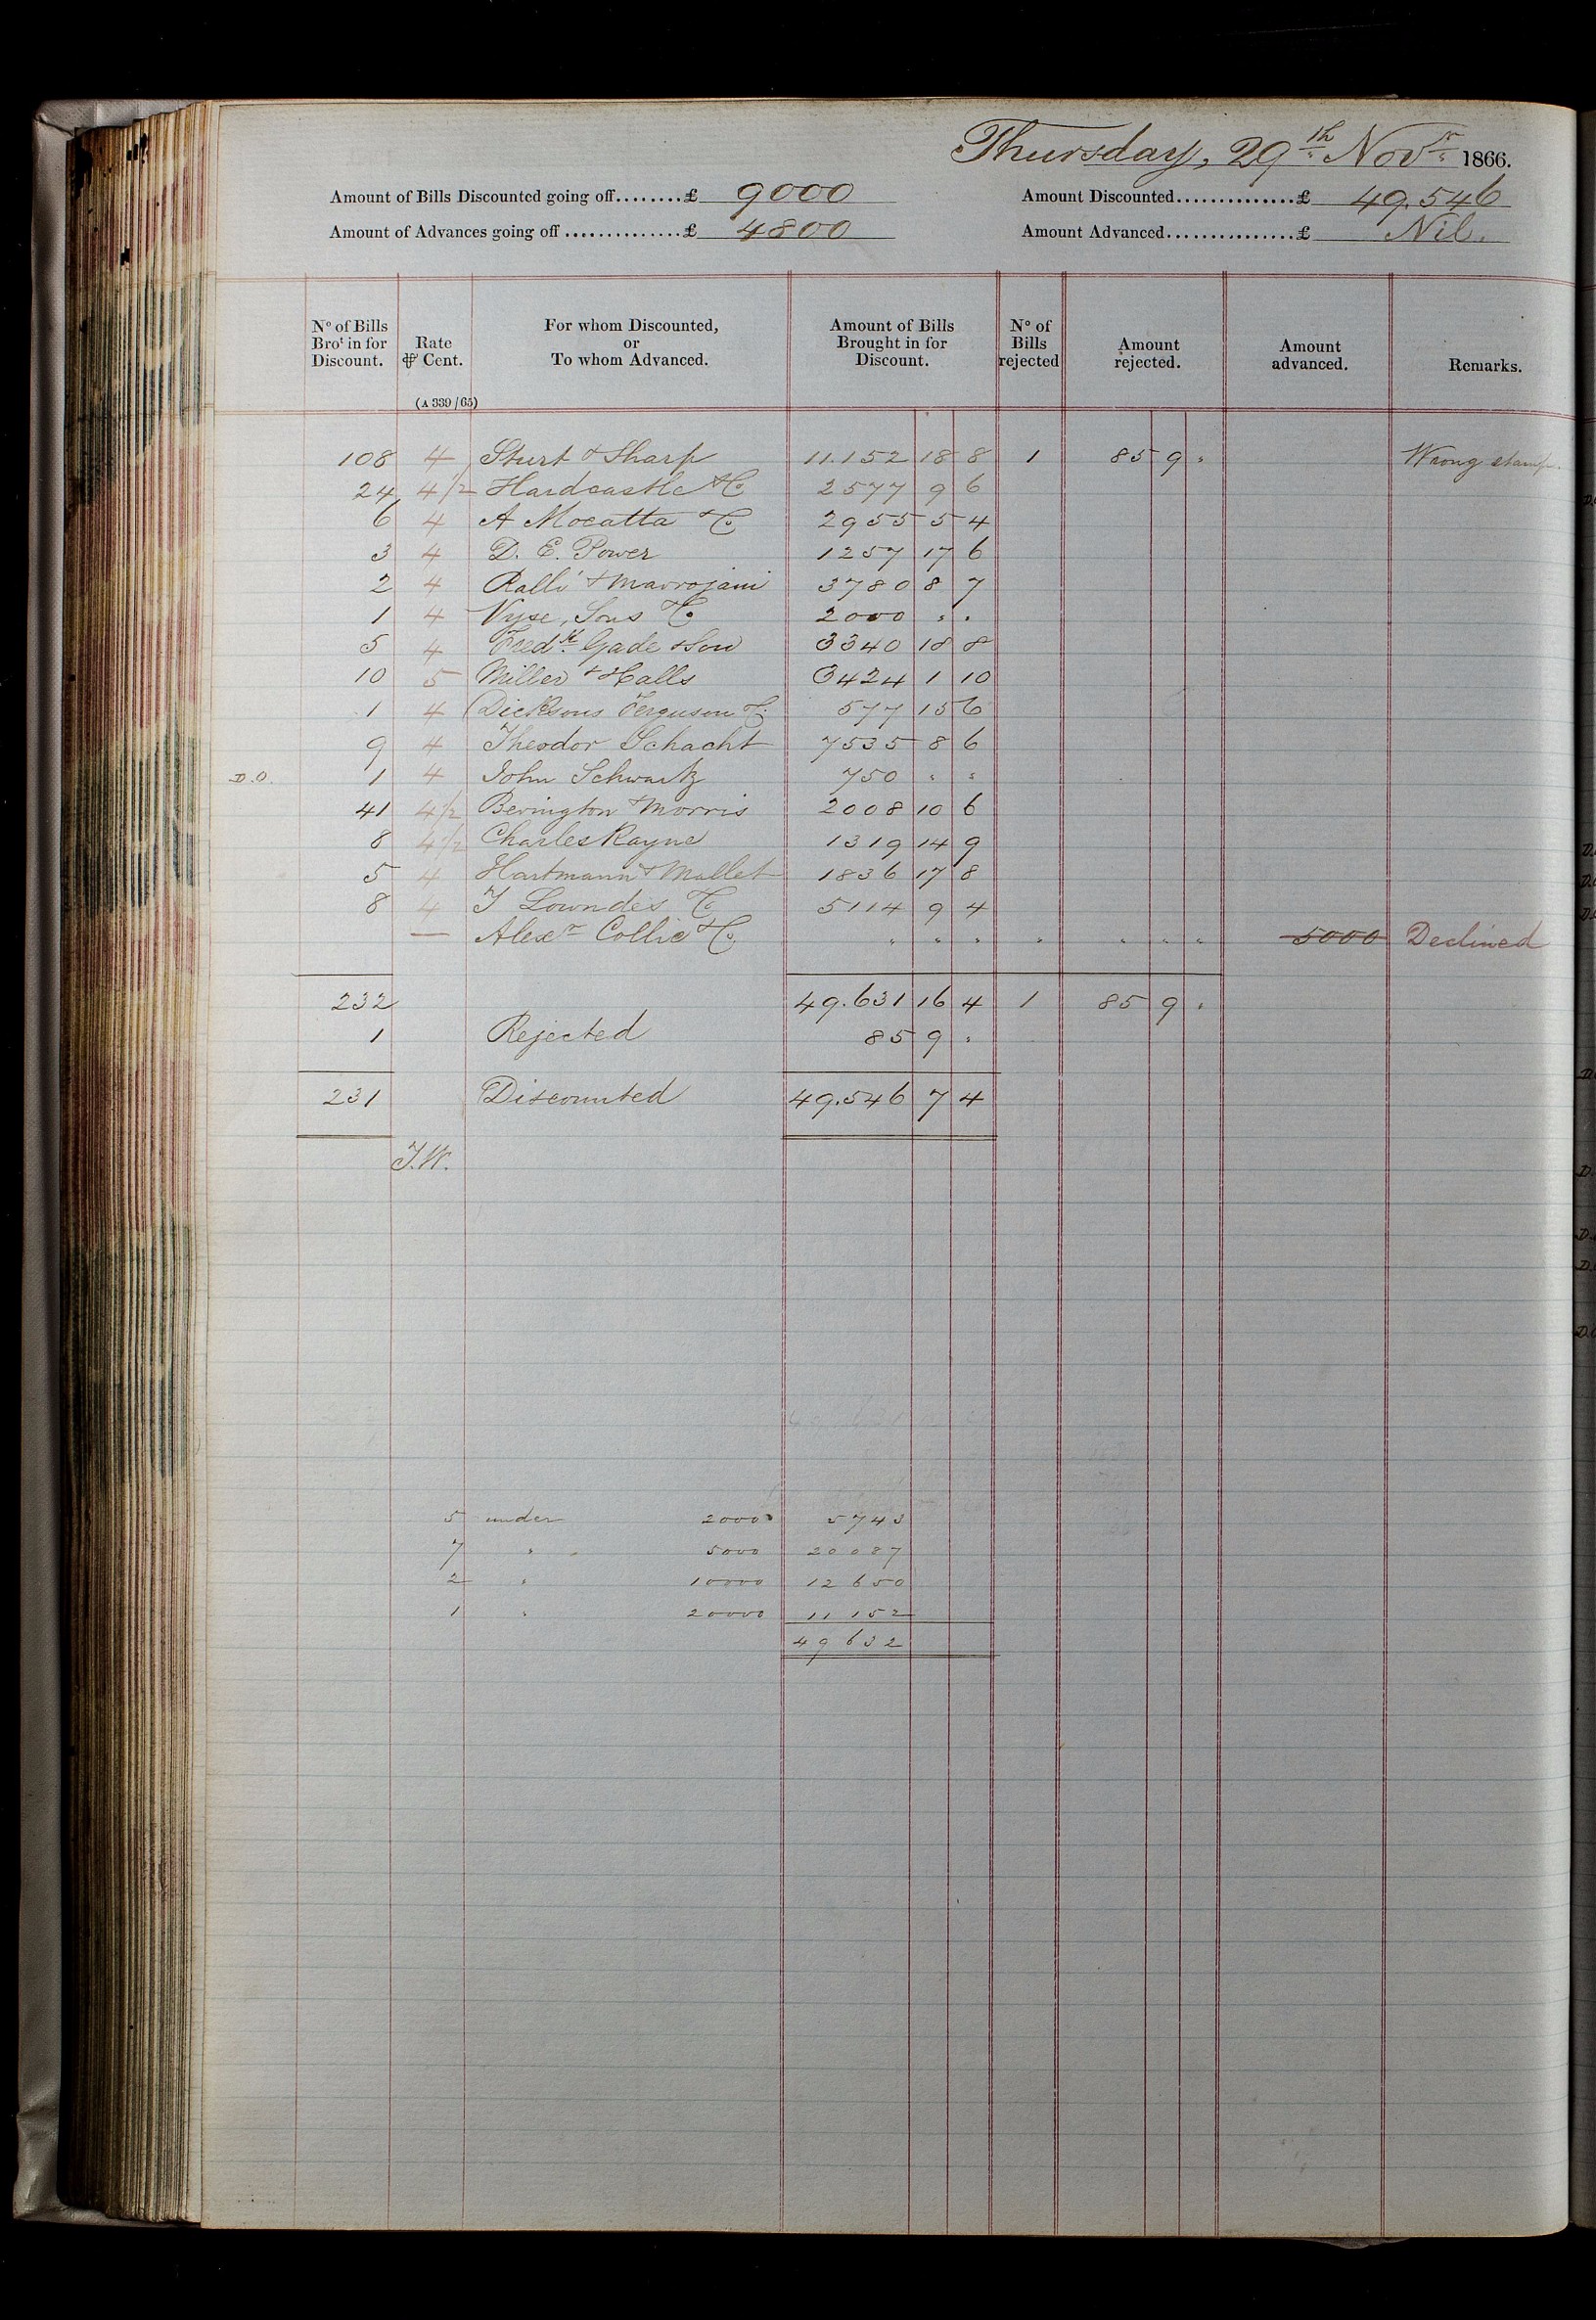 Thursday, 29th Novr 1866.
Amount of Bills Discounted going off........£ 9000 Amount Discounted..............£ 49.546
Amount of Advances going off..............£ 4800 Amount Advanced...............£ Nil.
No of Bills Brot in for Discount. Rate ⅌ Cent. (A 339/65) For whom Discounted, or To whom Advanced. Amount of Bills Brought in for Discount. No of Bills rejected Amount rejected. Amount advanced. Remarks.
108 4 Sturt & Sharp 11.152 18 8 1 85 9 " Wrong stamp.
24 4½ Hardcastle & Co 2577 9 6
6 4 A Mocatta & Co 2955 5 4
3 4 D. E. Power 1257 17 6
2 4 Ralli & Mavrojani 3780 8 7
1 4 Vyse, Sons & Co 2000 " "
5 4 Fredk Gade & Son 3340 18 8
10 5 Miller & Halls 3424 1 10
1 4 Dicksons Ferguson & Co 577 15 6
9 4 Theodor Schacht 7535 8 6
D.O. 1 4 John Schwartz 750 " "
41 4½ Berington & Morris 2008 10 6
8 4½ Charles Rayne 1319 14 9
5 4 Hartmann & Mallet 1836 17 8
8 4 T Lowndes & Co 5114 9 4
— Alexr Collie & Co " " " " " " " 5000 Declined
232 49.631 16 4 1 85 9 "
1 Rejected 85 9 "
231 Discounted 49.546 7 4
J.W.
5 under 2000 5743
7 " 5000 20087
2 " 10000 12650
1 " 20000 11152
49632